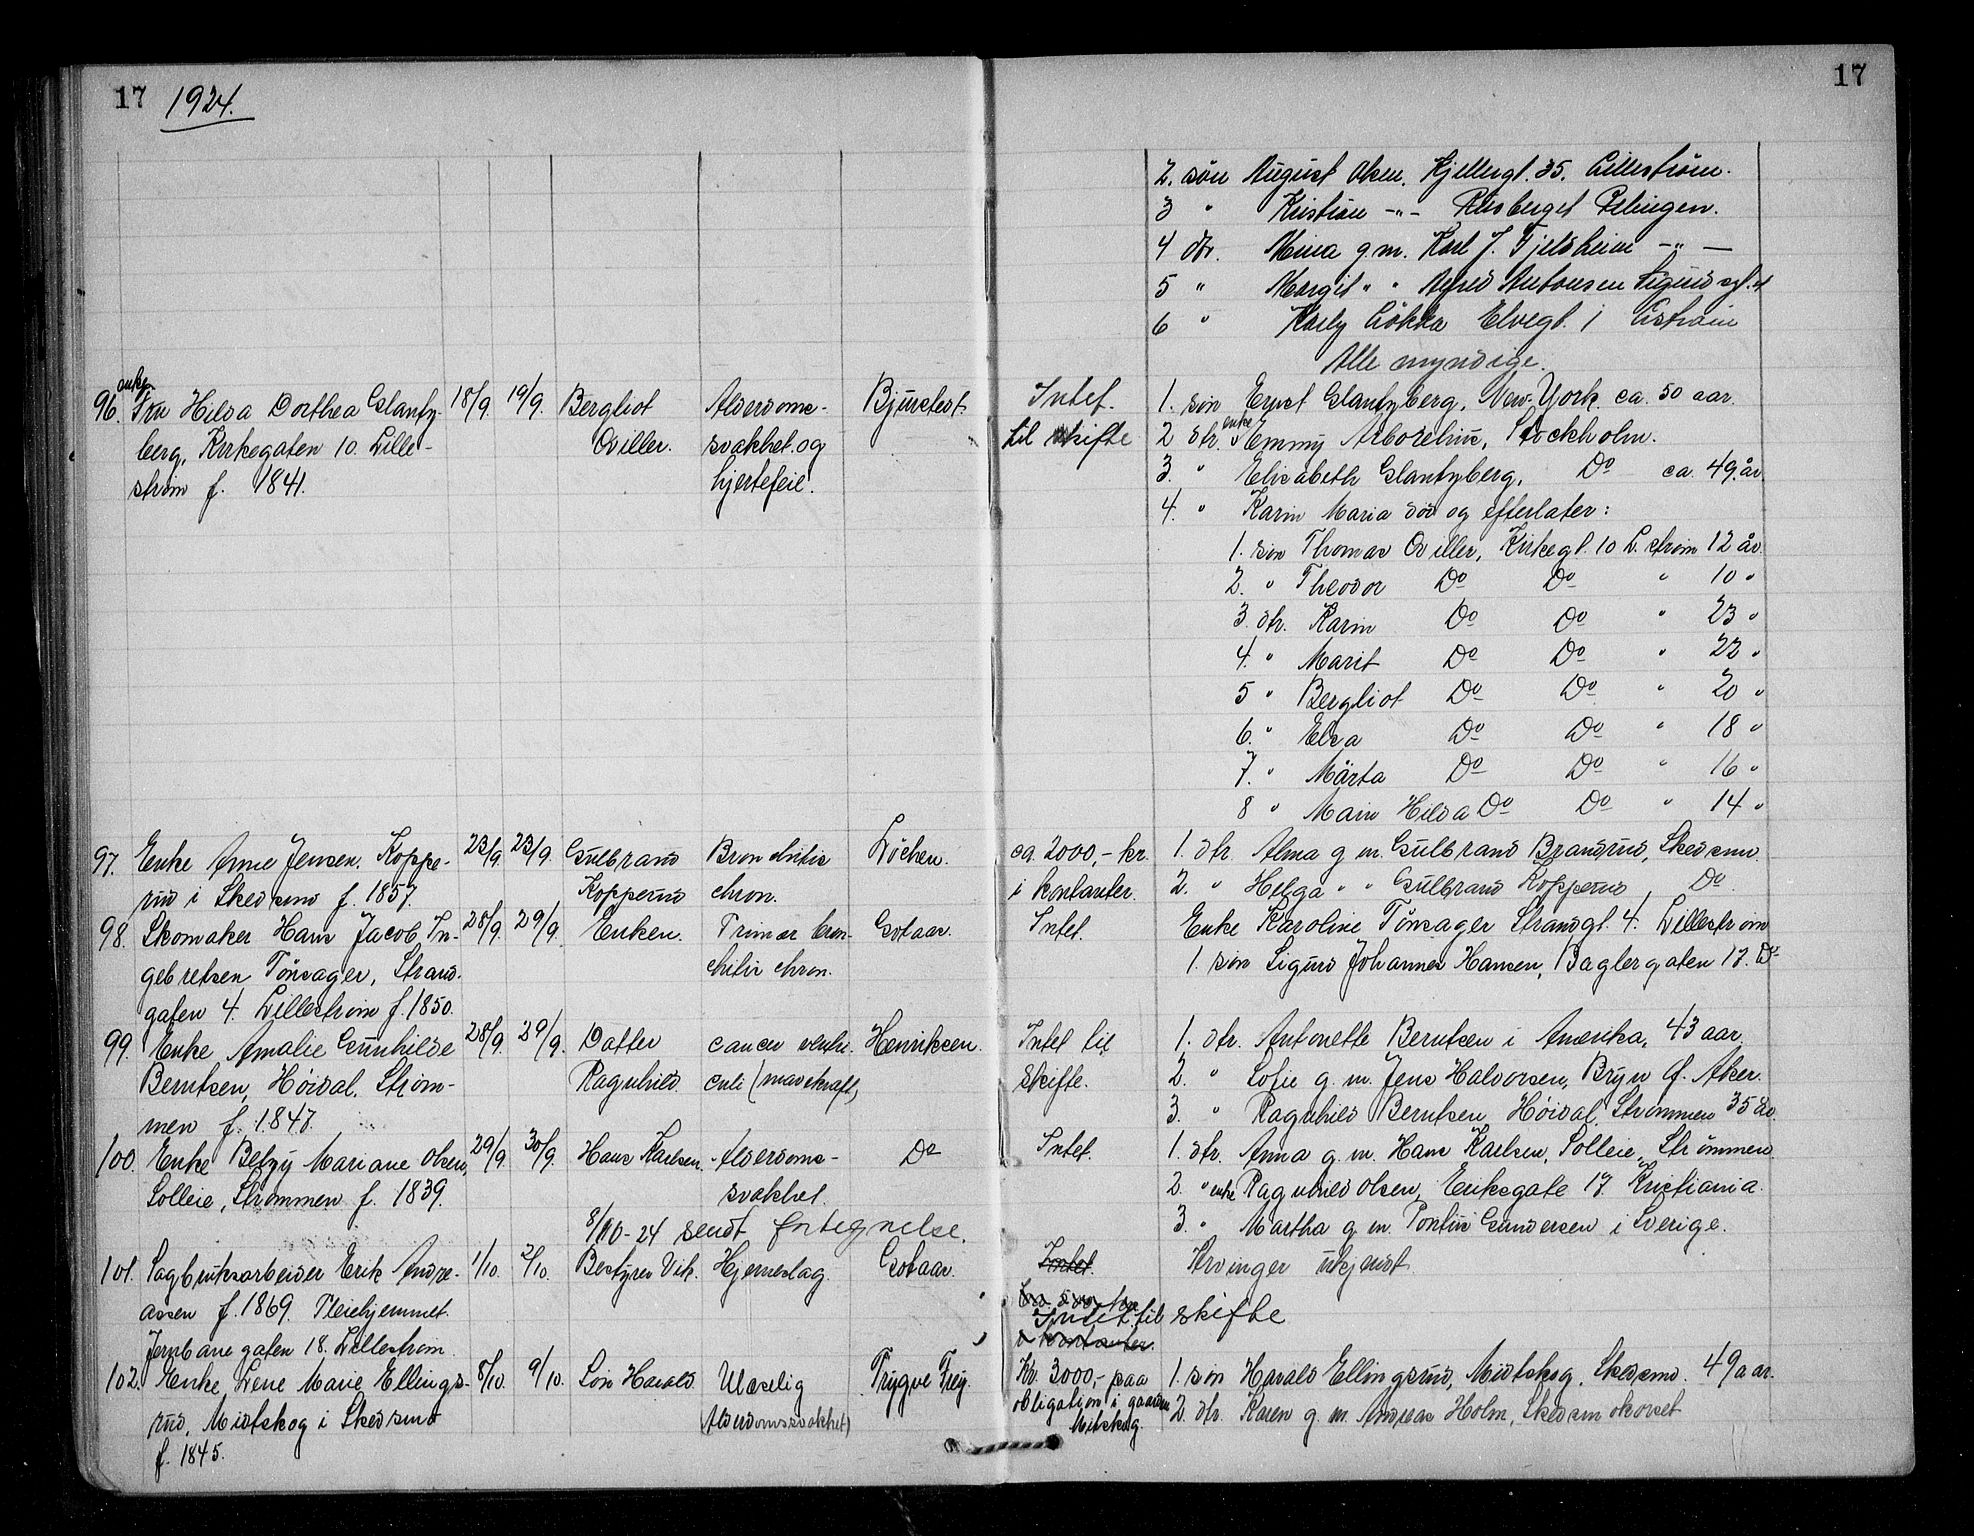 17 1924. 17
2. søn August Olsen, Kjellergt. 35. Lillestrøm.
3 " Kristian -"-
4 dtr. Mina g.m. Karl J. Fjeldheim -"-
5 " Margit " " Alfred Antonsen Sigurdsgt. 4
6 " Løkka Elvegt. 1
Alle myndige.
96. enke Fru Hilda Dorthea Glantz- 18/9 19/9. Bergliot Alderdoms- Bjurstedt Intet 1. søn Ernst Glantzberg, New-York. ca. 50 aar.
berg, Kirkegaten 10. Lille- Oviller. svakhet og til skifte 2 dtr. enke Emmy Arborelius, Stockholm.
strøm f. 1841. hjertefeil. 3. " Elisabeth Glantzberg, Do ca. 49. år
4. " Karin Maria død og efterlater:
1. søn Thomas Oviller, Kirkegt. 10 L.strøm 12 år.
2. " Theodor Do Do " 10 "
3. dtr. Karin Do Do " 23 "
4. " Marit Do Do " 22 "
5 " Bergliot Do Do " 20 "
6. " Elsa Do Do " 18 "
7. " Märta Do Do " 16 "
8 " Main Hilda Do Do " 14 "
97. Enke Anne Jensen. Koppe- 23/9. 23/9. Gulbrand Bronchitis Løchen. ca. 2000,- kr. 1. dtr. Alma g m. Gulbrand Brandrud, Skedsmo
rud i Skedsmo f. 1857. Kopperud chron. i kontanter. 2. " Helga " " Gulbrand Kopperud Do.
98. Skomaker Hans Jacob In- 28/9. 29/9. Enken. Primær bron- Gotaas. Intet. Enke Karoline Tønsager Strandgt. 4. Lillestrøm
gebretsen Tønsager, Strand- chitis chron. 1. søn Sigurd Johannes Hansen, Baglergaten 17. Do
gaten 4. Lillestrøm f. 1850.
99. Enke Amalie Gunhilde 28/9. 29/9. Datter cancer ventri- Henriksen. Intet til 1. dtr. Antonette Berntsen i Amerika, 43 aar
Berntsen, Høidal. Strøm- Ragnhild culi (mavekræft) skifte. 2. " Sofie g. m. Jens Halvorsen, Bryn Ø. Aker.
men f. 1847. 3. " Ragnhild Berntsen Høidal, Strømmen 35 år
100. Enke Betzy Mariane Olsen, 29/9. 30/9. Hans Karlsen. Alderdoms- Do Intet. 1. dtr. Anna g. m. Hans Karlsen, Solleie, Strømmen
Solleie, Strømmen f. 1839. svakhet. 2. " enke Ragnhild Olsen, Eriksgate 17. Kristiania.
8/10-24 sendt fortegnelse. 3. " Martha g. m. Pontus Gundersen i Sverige.
101. Sagbruksarbeider Erik Andre- 1/10. 2/10. Bestyrer Vik. Hjerneslag. Gotaas. Intet. Arvinger ukjendt
assen f. 1869. Pleiehjemmet. Ca. 500 kr
Intet til skifte
Jernbanegaten 18. Lillestrøm. i kontanter.
102. Enke Lene Marie Ellings- 8/10. 9/10. Søn Harald. Ulæselig Trygve Frey. Kr. 3000,- paa 1. søn Harald Ellingsrud, Midtskog, Skedsmo. 49 a aar.
rud, Midtskog i Skedsmo (Alderdomssvakhet) obligation i gaarden 2. dtr. Karen g. m. Andreas Holm, Skedsmokorset
f. 1845. Mitskog.